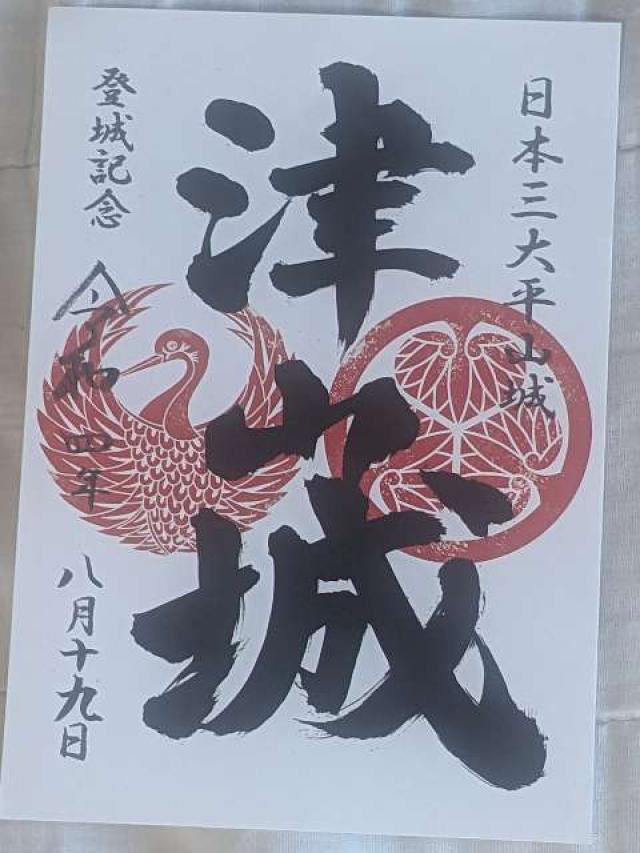 日本三大平山城
津山城
登城記念
令和四年
八月十九日